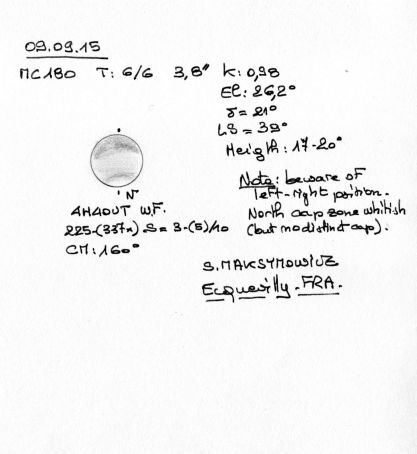 09.09.15
MC180 T: 6/6 3,8" K: 0,98
El: 26,2°
γ = 21°
LS = 39°
Height: 17-20°
N
4H40UT W.F.
225-(337x) S = 3-(5)/10
CM: 160°
Note: beware of
left-right position.
North cap zone whitish
(but no distinct cap).
S. MAKSYMOWICZ
Ecquevilly - FRA.